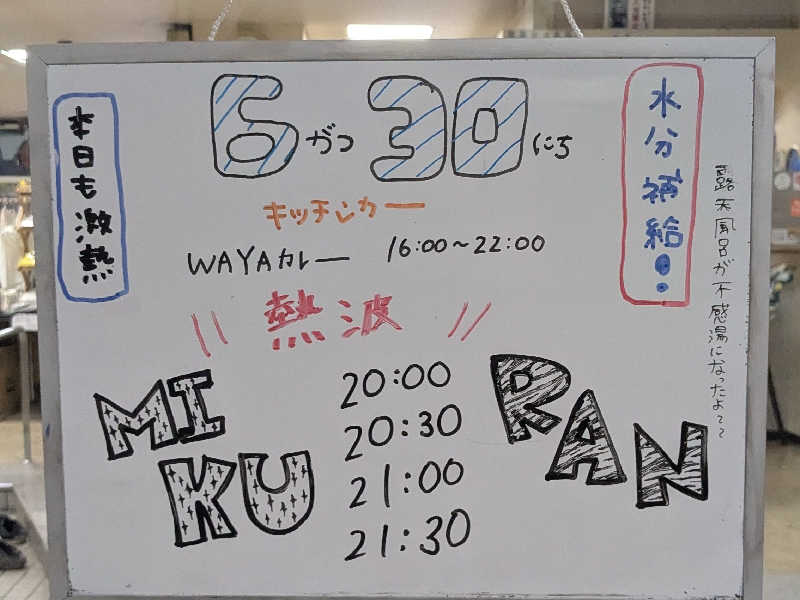 6がつ30にち
本日も激熱
水分補給!!
露天風呂が不感湯になったよ〜〜
キッチンカー
WAYAカレー 16:00〜22:00
\\ 熱波 //
MIKU
20:00
20:30
21:00
21:30
RAN